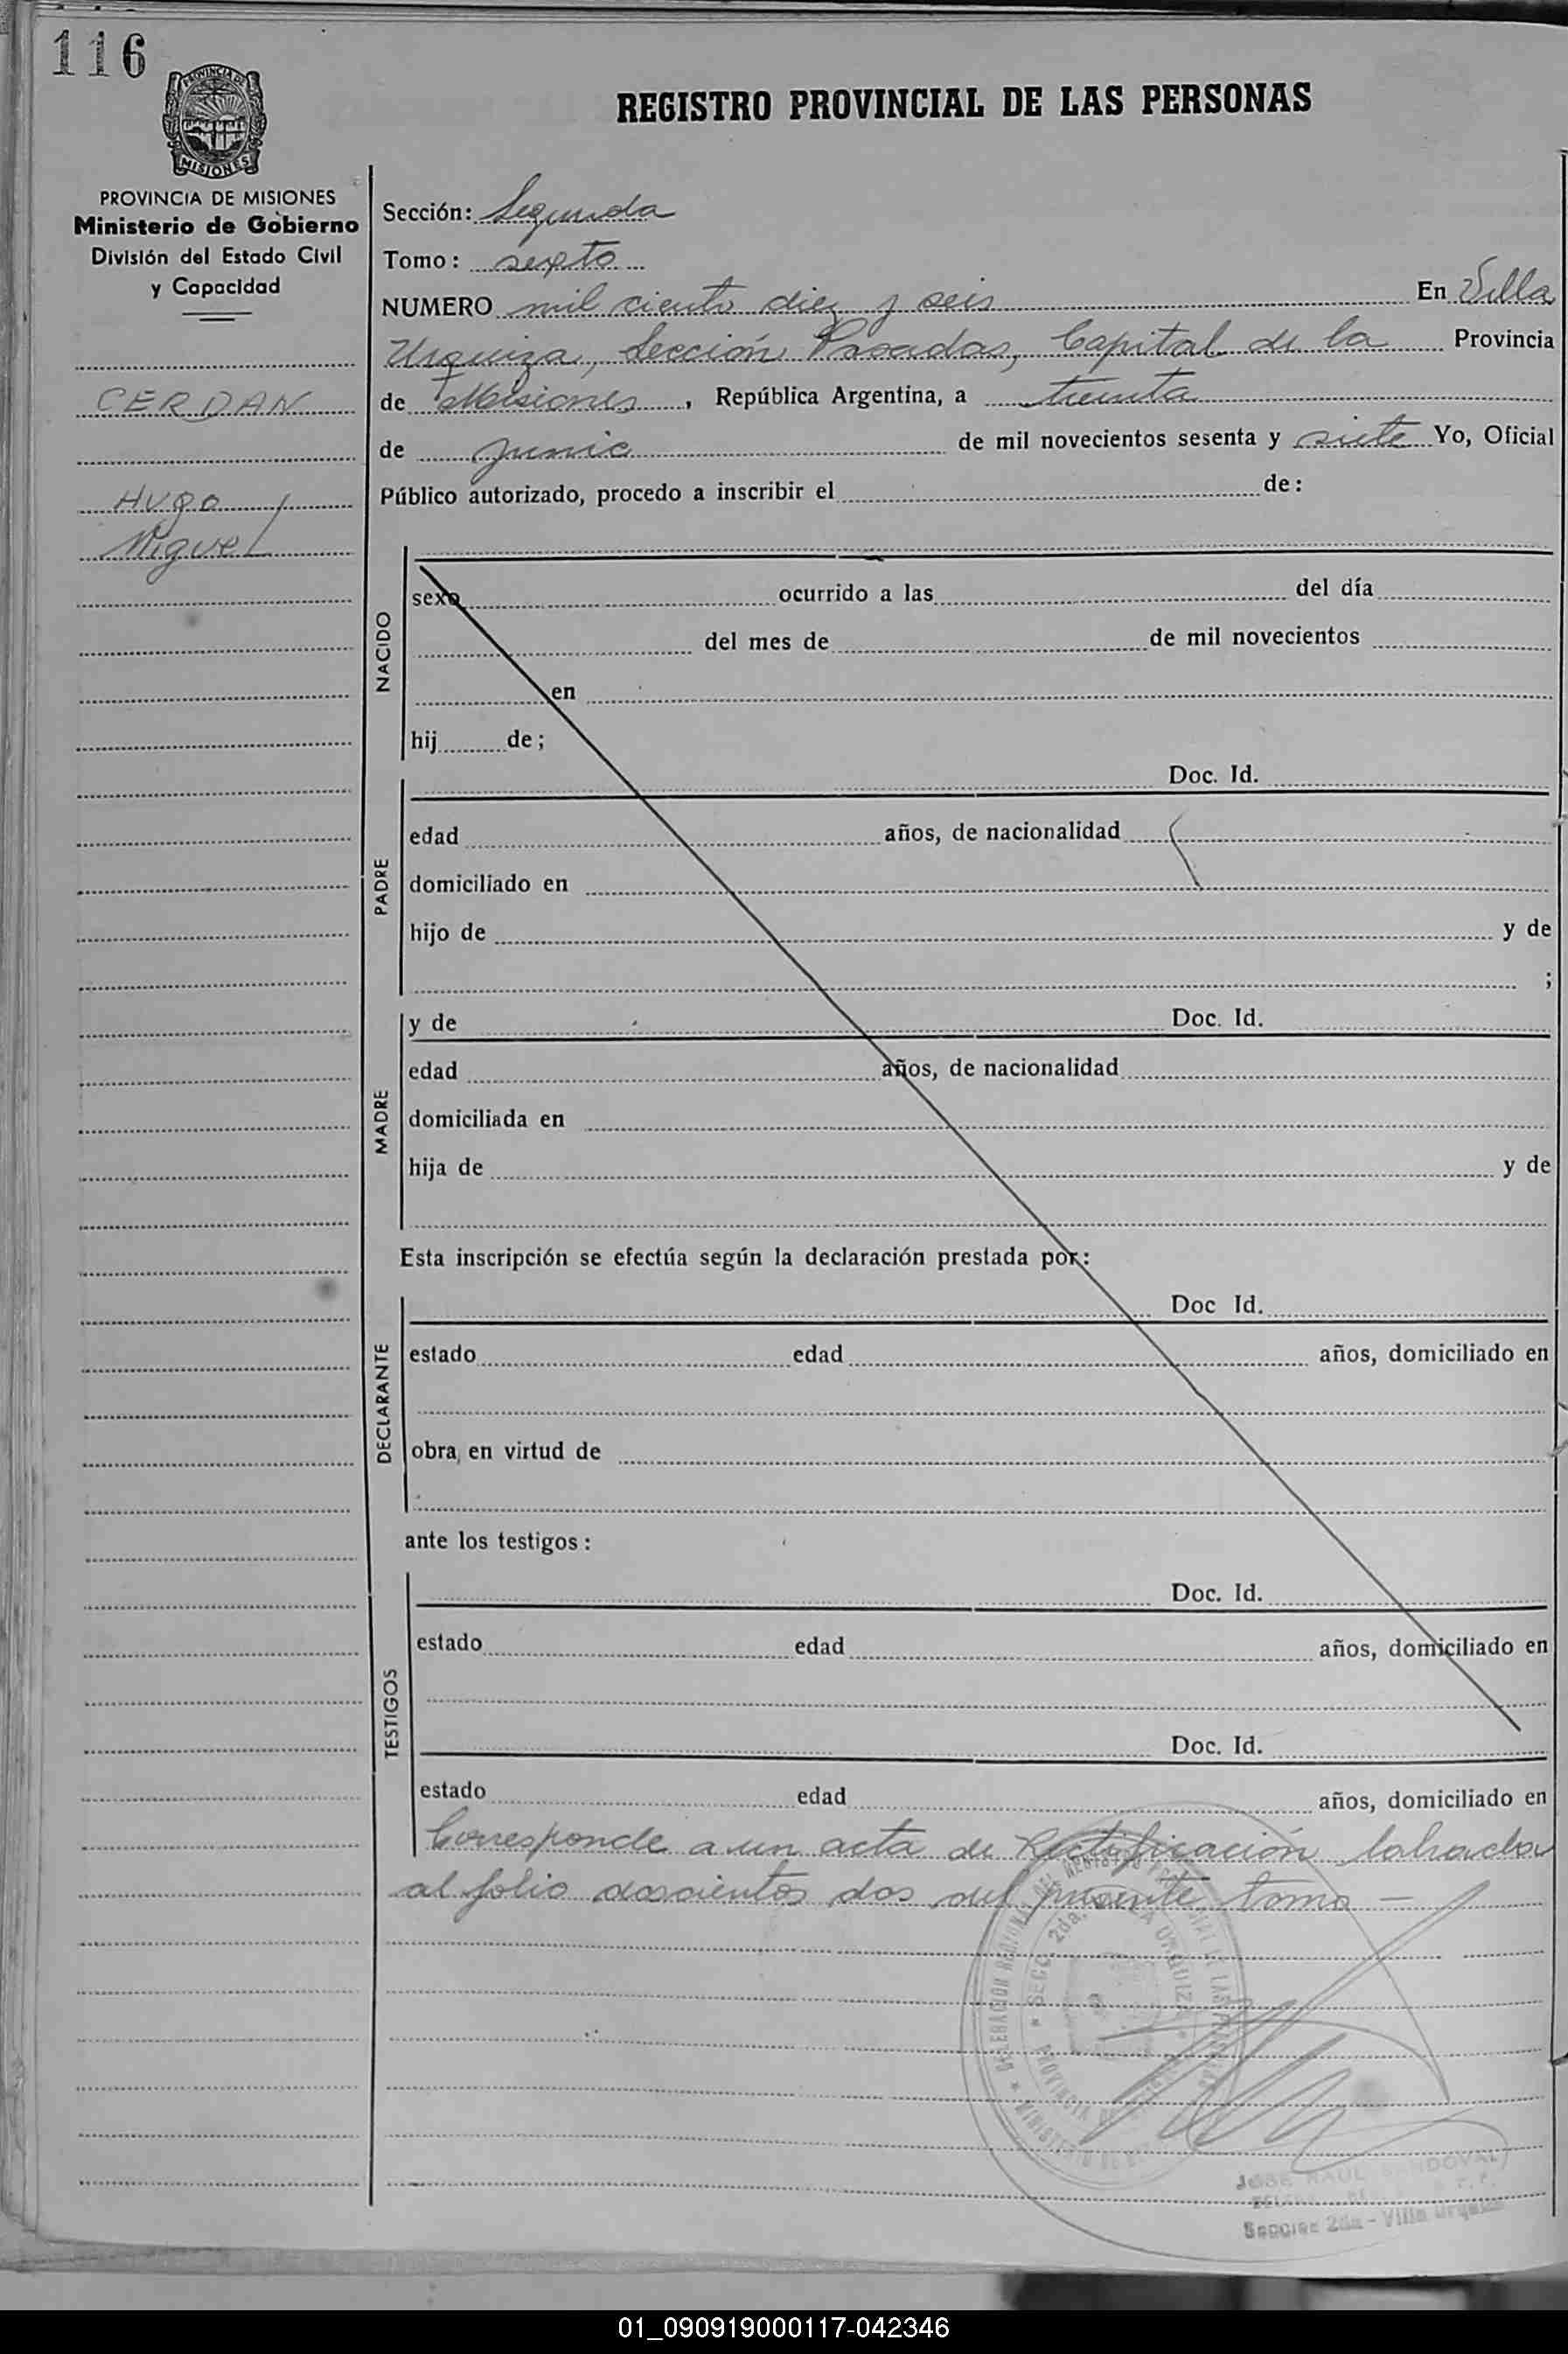 116
PROVINCIA DE
MISIONES
PROVINCIA DE MISIONES
Ministerio de Gobierno
División del Estado Civil
y Capacidad
CERDAN
Hugo
Miguel
REGISTRO PROVINCIAL DE LAS PERSONAS
Sección: Segunda
Tomo: sexto
NUMERO mil ciento diez y seis En Villa
Urquiza, Sección Posadas, Capital de la Provincia
de Misiones, República Argentina, a treinta
de junio de mil novecientos sesenta y siete Yo, Oficial
Público autorizado, procedo a inscribir el de:
NACIDO
sexo ocurrido a las del día
del mes de de mil novecientos
en
hij de;
PADRE
Doc. Id.
edad años, de nacionalidad
domiciliado en
hijo de y de
;
MADRE
y de Doc. Id.
edad años, de nacionalidad
domiciliada en
hija de y de
Esta inscripción se efectúa según la declaración prestada por:
DECLARANTE
Doc Id.
estado edad años, domiciliado en
obra, en virtud de
ante los testigos:
TESTIGOS
Doc. Id.
estado edad años, domiciliado en
Doc. Id.
estado edad años, domiciliado en
Corresponde a un acta de Rectificación labrada
al folio doscientos dos del presente tomo —
SECC. 2da. VILLA URQUIZA
JOSE RAUL SANDOVAL
Seccion 2da - Villa Urquiza
01_090919000117-042346